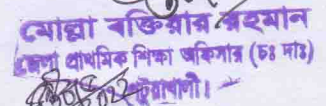 মোল্লা বক্তিয়ার রহমান
জেলা প্রাথমিক শিক্ষা অফিসার (চঃ দাঃ)
পটুয়াখালী।